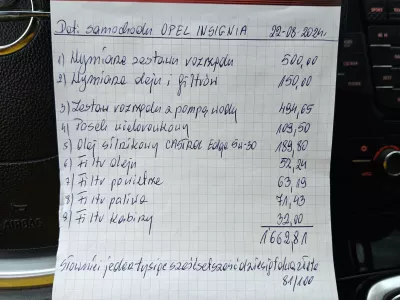 Dot: samochodu OPEL INSIGNIA 22-08-2024r.
1) Wymiana zestawu rozrządu 500,00
2) Wymiana oleju i filtrów 150,00
3) Zestaw rozrządu z pompą wody 494,65
4) Pasek wielorowkowy 109,50
5) Olej silnikowy CASTROL Edge 5w-30 189,80
6) Filtr oleju 52,24
7) Filtr powietrza 63,19
8) Filtr paliwa 71,43
9) Filtr kabiny 32,00
1662,81
Słownie: jeden tysiąc sześćset sześćdziesiąt dwa złote
81/100
AIRBAG